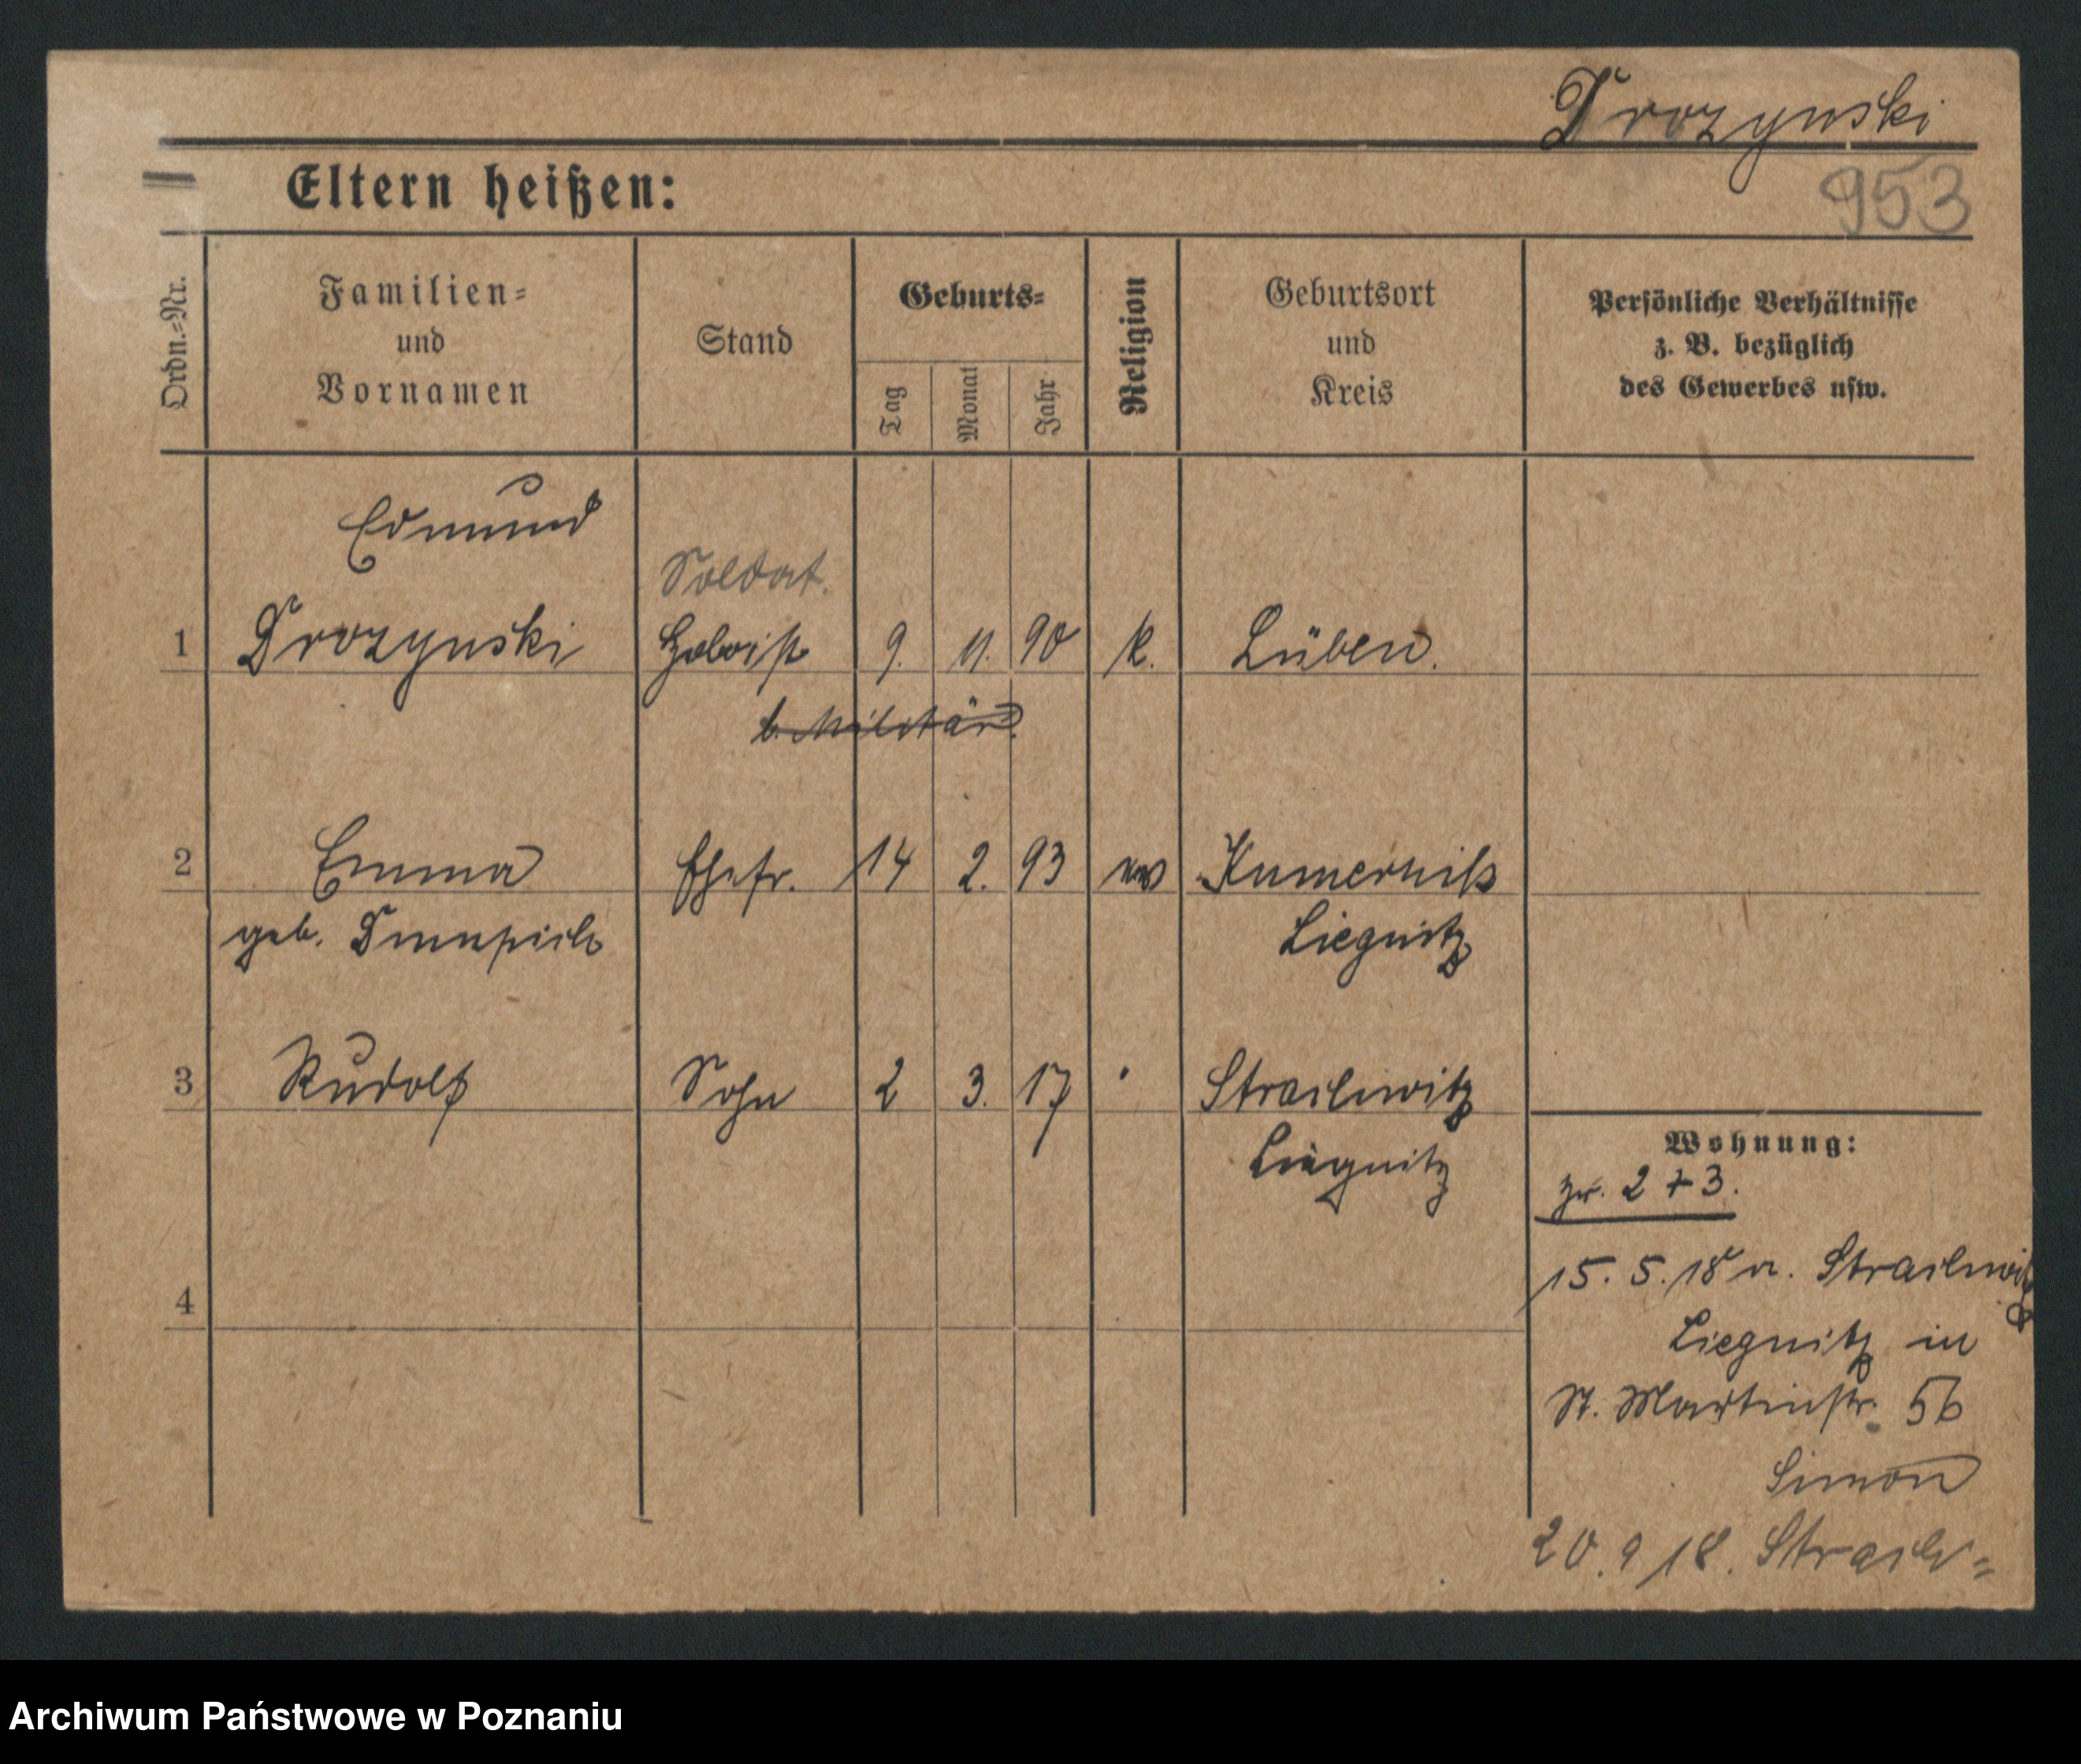 Drozynski
953
Eltern heißen:
Ordn.=Nr.
Familien=
und
Vornamen
Stand
Geburts=
Tag
Monat
Jahr
Religion
Geburtsort
und
Kreis
Persönliche Verhältnisse
z. B. bezüglich
des Gewerbes usw.
Edmund
Soldat.
1 Drozynski Hoboist 9. 11. 90 k. Lüben.
b. Militär.
2 Emma Ehefr. 14 2. 93 ev Kumernik
geb. Liegnitz
3 Rudolf Sohn 2 3. 17 " Strachwitz
Liegnitz
Wohnung:
zu. 2 + 3.
15. 5. 18 v. Strachwitz
4
Liegnitz in
St. Martinstr. 56
Simon
20. 9 18. Strachw=
Archiwum Państwowe w Poznaniu